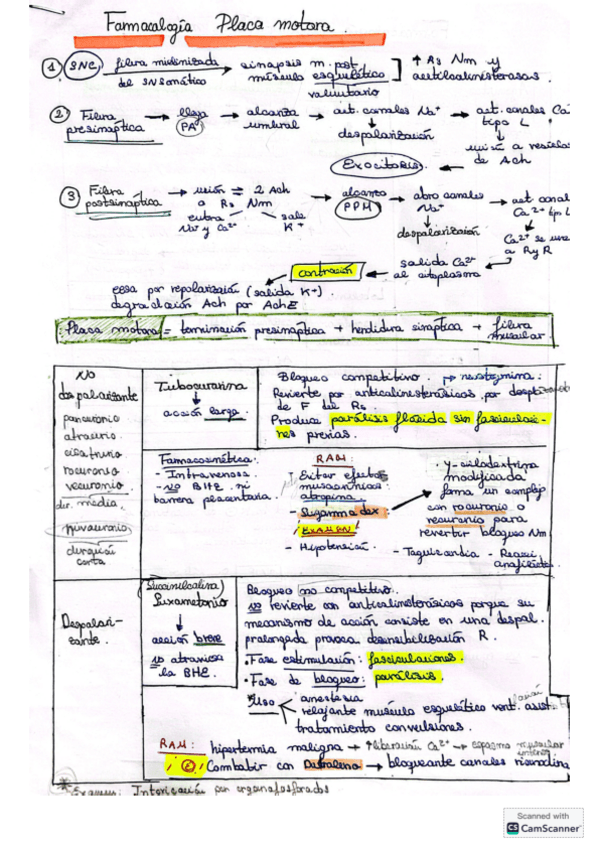 Farmacología Placa motora.
① SNC → fibra mielinizada del SN somático → sinapsis m. post. músculo esquelético voluntario ] ↑ Rs Nm y anticolinesterasas.
② Fibra presináptica → llega PA → alcanza umbral → act. canales Na+ → act. canales Ca tipo L
despolarización
de Ach
Exocitosis.
③ Fibra postsináptica → unión = 2 Ach a Rs Nm → alcanza PPM → abro canales Na+ → act canal Ca2+ tipo L
entra Na+ y Ca2+
sale K+
despolarización
Ca2+ se une a RyR
salida Ca2+ al citoplasma
contracción
cesa por repolarización (salida K+)
degradación Ach por AchE
Placa motora = terminación presináptica + hendidura sináptica + fibra muscular
No despolarizante
pancuronio
atracurio
cisatracurio
rocuronio
vecuronio
dur. media
mivacurio
duración corta
Tubocurarina
→ acción larga.
Bloqueo competitivo. → neostigmina.
Revierte por anticolinesterásicos por despl
de F del Rs.
Produce parálisis flácida sin fasciculaciones previas.
Farmacocinética:
- Intravenosa
- no BHE ni barrera placentaria.
RAM:
- Evitar efectos muscarínicos: atropina.
- Sugammadex
EXAMEN
- Hipotensión
- Taquicardia - Reacc. anafilácti
• γ-ciclodextrina modificada
forma un complejo
con rocuronio o
vecuronio para
revertir bloqueo Nm
Despolarizante.
(Succinilcolina)
Suxametonio
↓
acción breve
no atraviesa
la BHE.
Bloqueo no competitivo.
no revierte con anticolinesterásicos porque su
mecanismo de acción consiste en una despol.
prolongada provoca desensibilización R.
• Fase estimulación: fasciculaciones.
• Fase de bloqueo: parálisis.
• Uso < anestesia
relajante músculo esquelético vent. asist
tratamiento convulsiones.
RAM: hipertermia maligna → ↑ liberación Ca2+ → espasmo muscular intenso
Combatir con Dantroleno → bloqueante canales rianodina
* Examen: Intoxicación por organofosforados
Scanned with
CS CamScanner